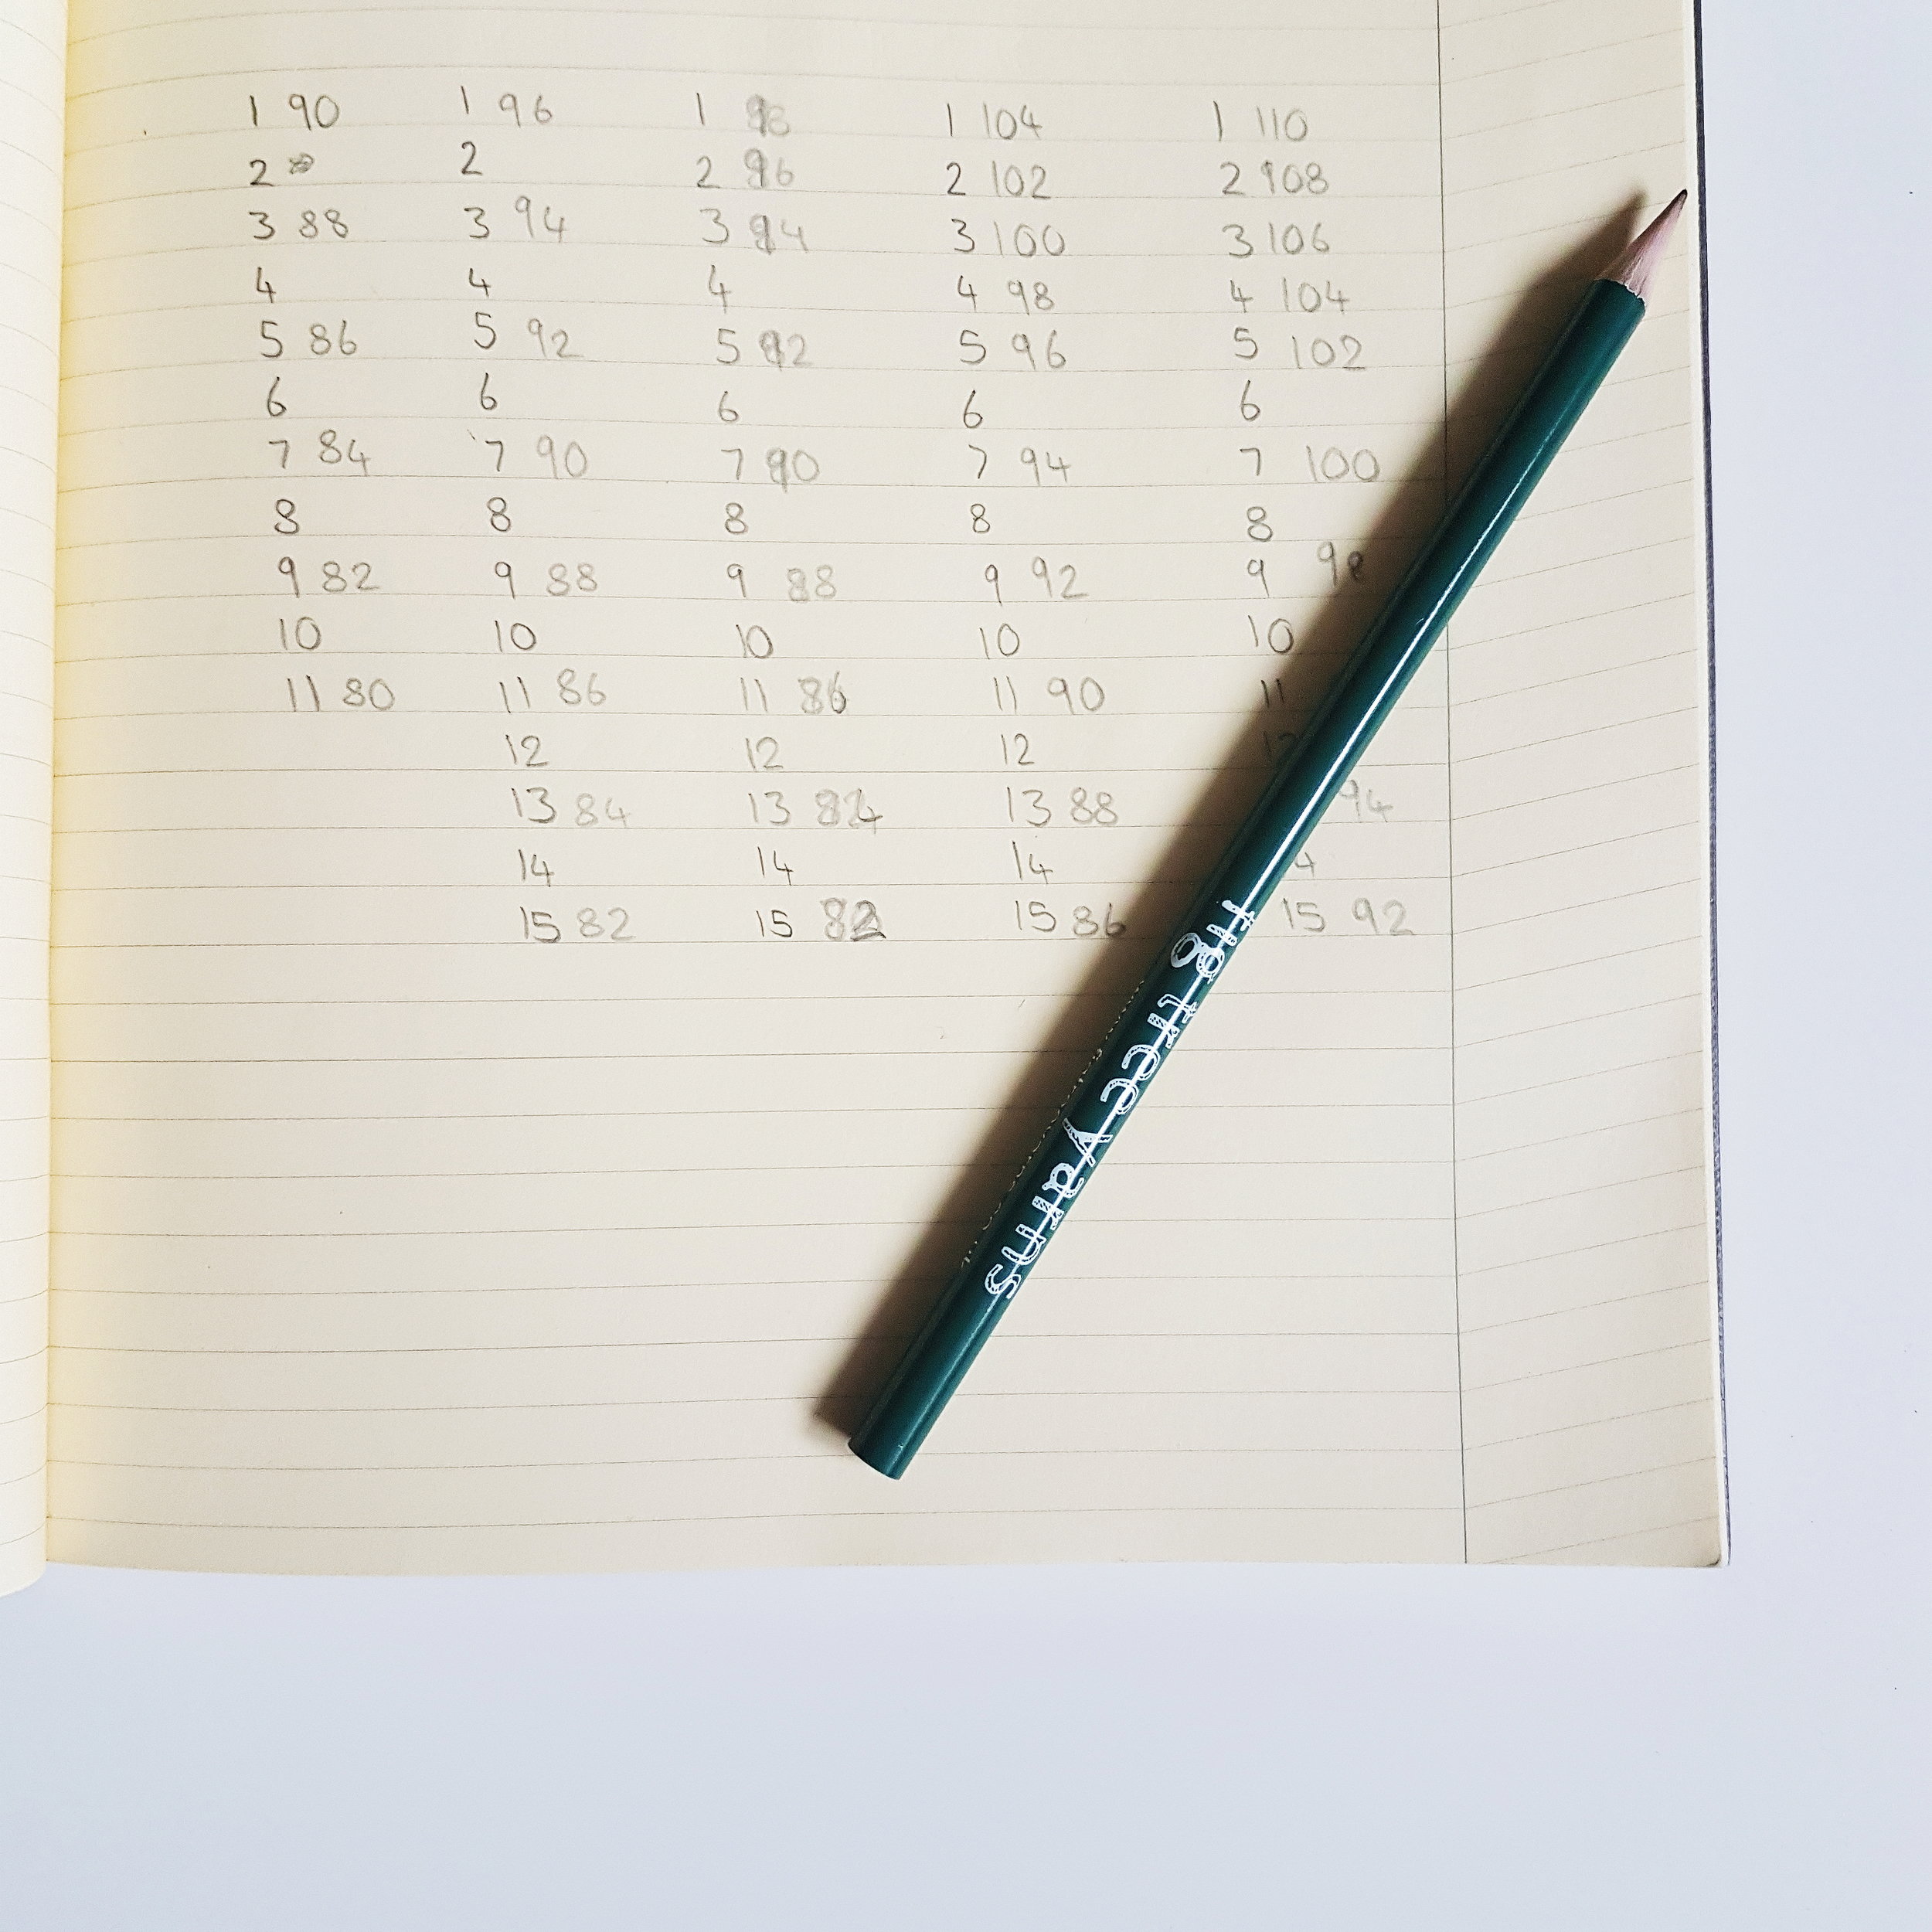 1 90 1 96 1 1 104 1 110
2 2 2 96 2 102 2 108
3 88 3 94 3 94 3 100 3 106
4 4 4 4 98 4 104
5 86 5 92 5 92 5 96 5 102
6 6 6 6 6
7 84 7 90 7 90 7 94 7 100
8 8 8 8 8
9 82 9 88 9 88 9 92 9 98
10 10 10 10 10
11 80 11 86 11 86 11 90 11
12 12 12 12
13 84 13 84 13 88 94
14 14 14 4
15 82 15 82 15 86 15 92
fig tree yarns